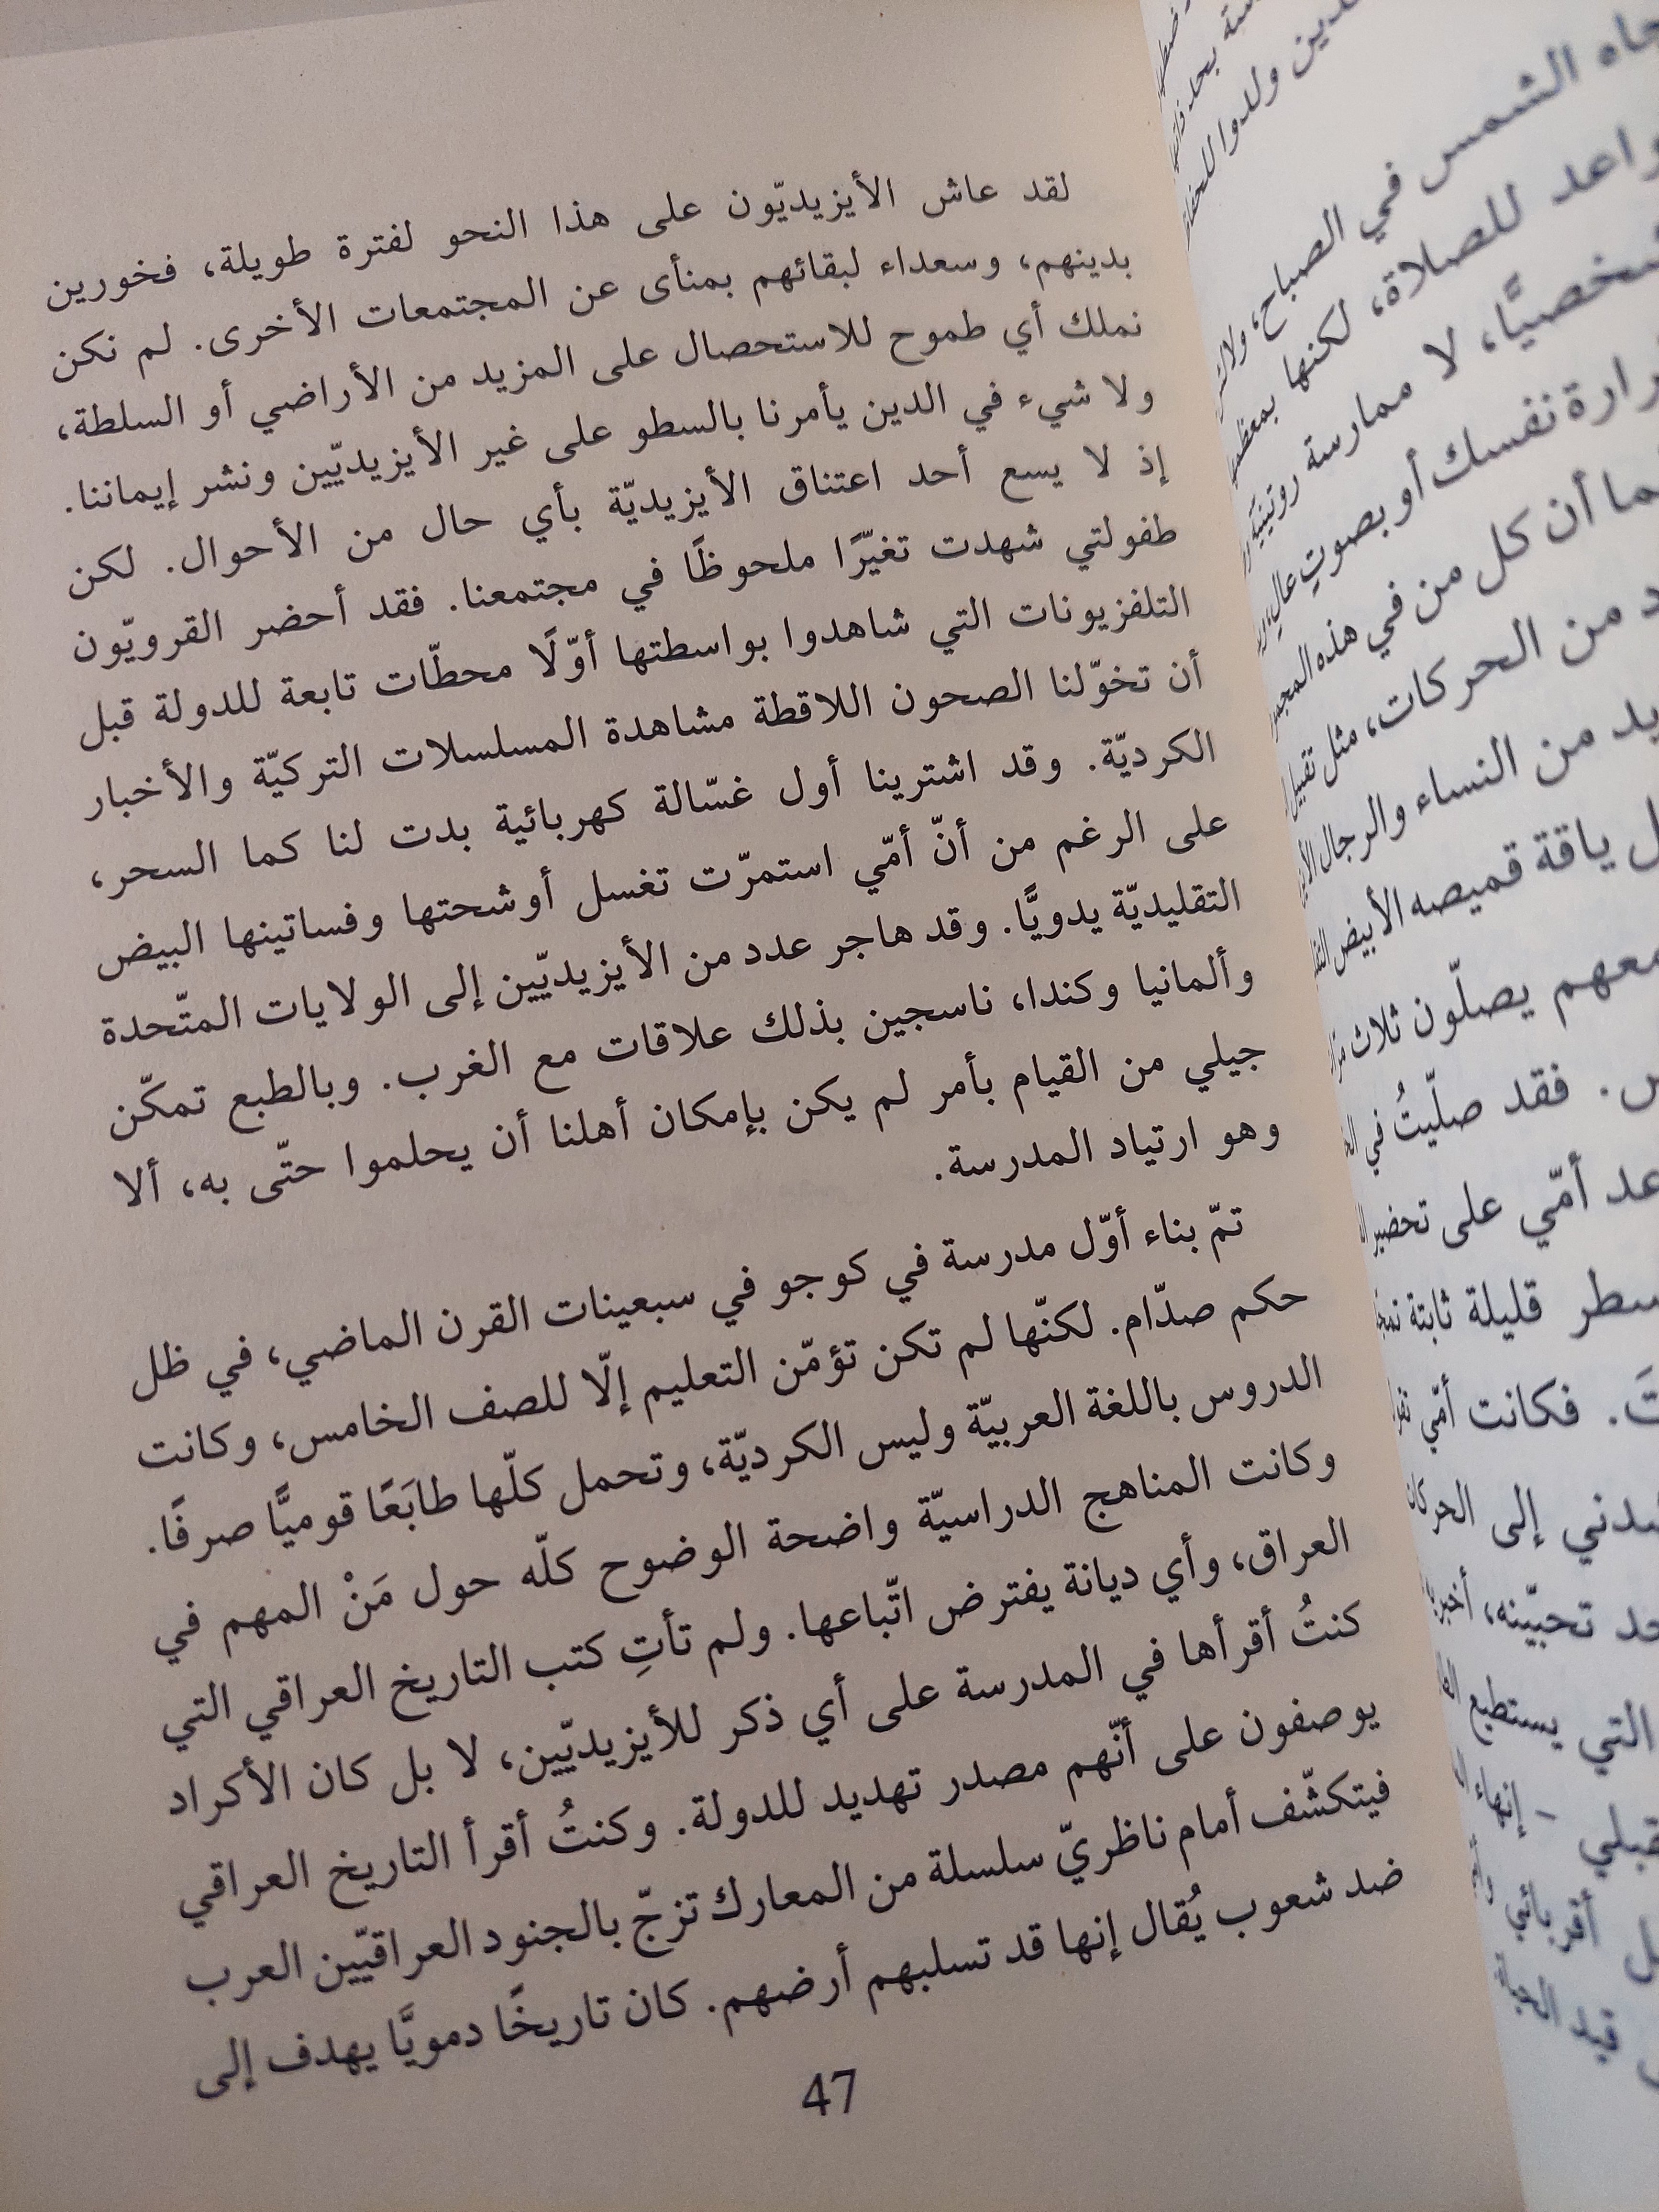 لقد عاش الأيزيديّون على هذا النحو لفترة طويلة، فخورين
بدينهم، وسعداء لبقائهم بمنأى عن المجتمعات الأخرى. لم نكن
نملك أي طموح للاستحصال على المزيد من الأراضي أو السلطة،
ولا شيء في الدين يأمرنا بالسطو على غير الأيزيديّين ونشر إيماننا.
إذ لا يسع أحد اعتناق الأيزيديّة بأي حال من الأحوال. لكن
طفولتي شهدت تغيّرًا ملحوظًا في مجتمعنا. فقد أحضر القرويّون
التلفزيونات التي شاهدوا بواسطتها أوّلًا محطّات تابعة للدولة قبل
أن تخوّلنا الصحون اللاقطة مشاهدة المسلسلات التركيّة والأخبار
الكرديّة. وقد اشترينا أول غسّالة كهربائية بدت لنا كما السحر،
على الرغم من أنّ أمّي استمرّت تغسل أوشحتها وفساتينها البيض
التقليديّة يدويًّا. وقد هاجر عدد من الأيزيديّين إلى الولايات المتّحدة
وألمانيا وكندا، ناسجين بذلك علاقات مع الغرب. وبالطبع تمكّن
جيلي من القيام بأمر لم يكن بإمكان أهلنا أن يحلموا حتّى به، ألا
وهو ارتياد المدرسة.
تمّ بناء أوّل مدرسة في كوجو في سبعينات القرن الماضي، في ظل
حكم صدّام. لكنّها لم تكن تؤمّن التعليم إلّا للصف الخامس، وكانت
الدروس باللغة العربيّة وليس الكرديّة، وتحمل كلّها طابَعًا قوميًّا صرفًا.
وكانت المناهج الدراسيّة واضحة الوضوح كلّه حول مَنْ المهم في
العراق، وأي ديانة يفترض اتّباعها. ولم تأتِ كتب التاريخ العراقي التي
كنتُ أقرأها في المدرسة على أي ذكر للأيزيديّين، لا بل كان الأكراد
يوصفون على أنّهم مصدر تهديد للدولة. وكنتُ أقرأ التاريخ العراقي
فيتكشّف أمام ناظريّ سلسلة من المعارك تزجّ بالجنود العراقيّين العرب
ضد شعوب يُقال إنها قد تسلبهم أرضهم. كان تاريخًا دمويًّا يهدف إلى
47
ولدوا
الشمس في الصباح،
للصلاة، لكنها
لا ممارسة روتينيّة
نفسك أو بصوتٍ عالٍ،
أن كل من في هذه
من الحركات، مثل
من النساء والرجال
ياقة قميصه الأبيض
معهم يصلّون ثلاث
فقد صلّيتُ في
أمّي على تحضير
قليلة ثابتة
فكانت أمّي
إلى
تحبّينه،
التي يستطيع
– إنهاء
أقربائي
قيد الحياة